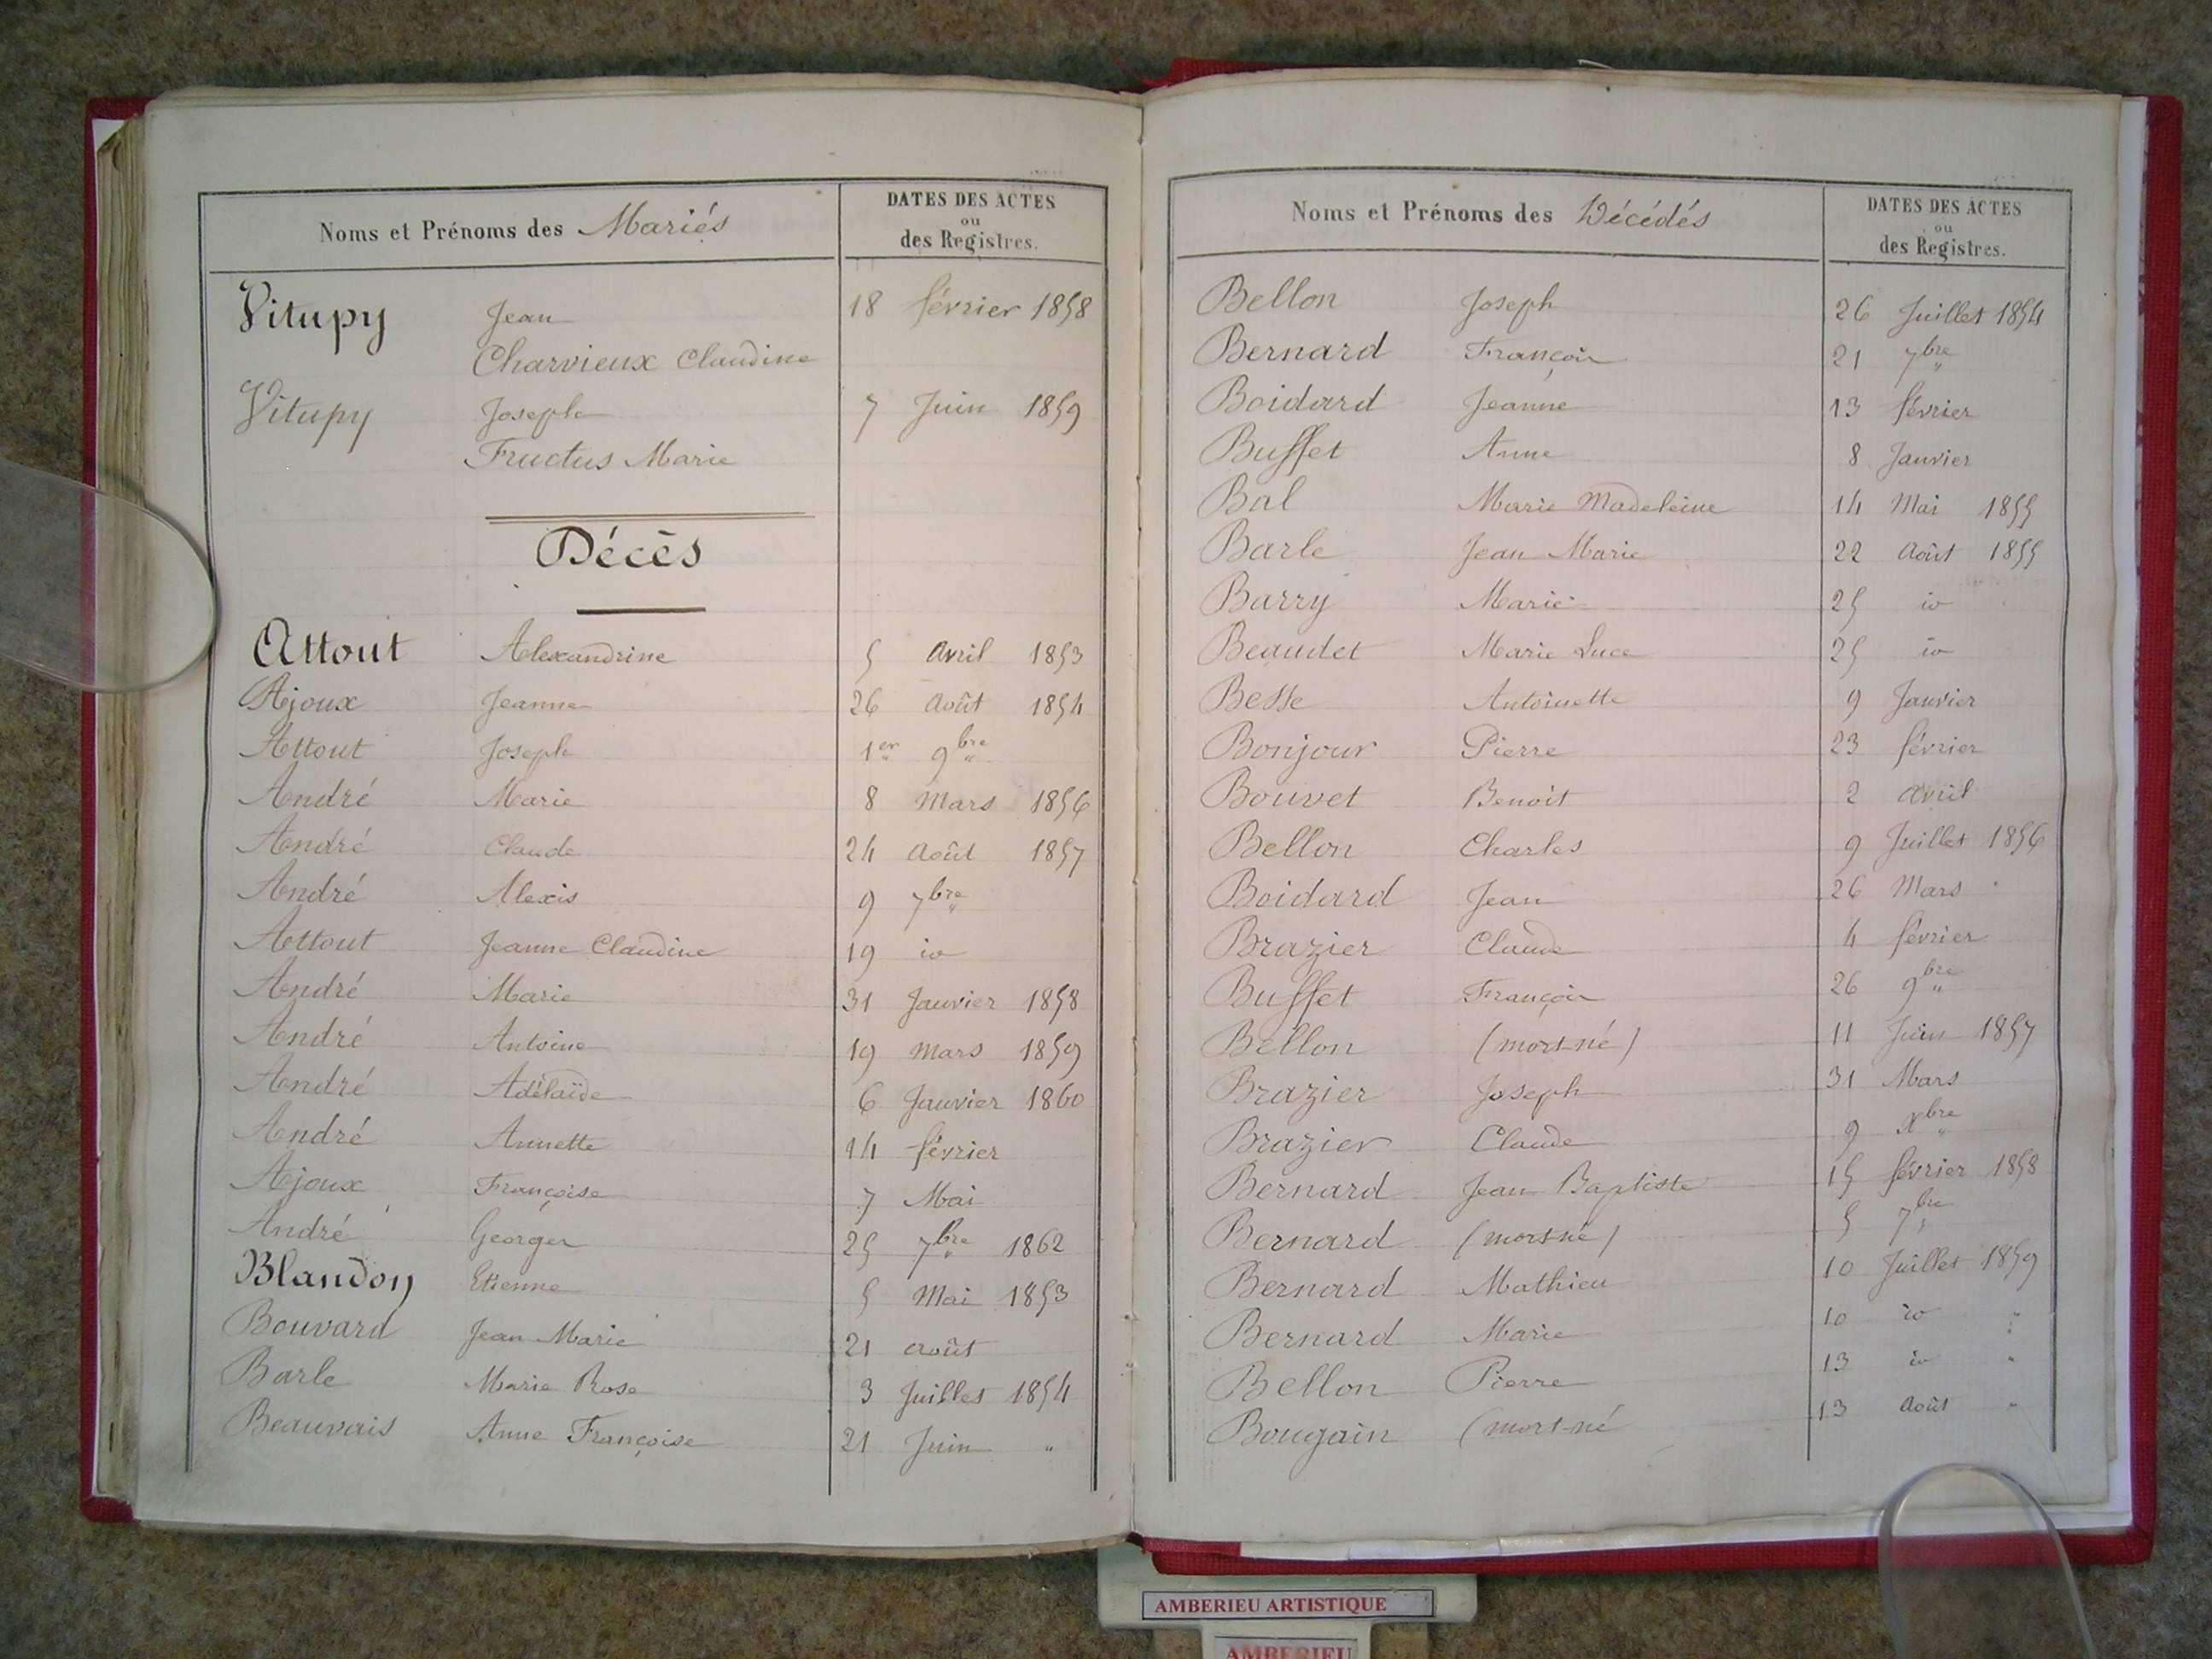 Noms et Prénoms des Mariés
DATES DES ACTES
ou
des Registres.
Vitupy Jean 18 février 1858
Charvieux Claudine
Vitupy Joseph 7 Juin 1859
Fructus Marie
Décès
Attout Alexandrine 5 Avril 1853
Ajoux Jeanne 26 Août 1854
Attout Joseph 1er 9bre "
André Marie 8 Mars 1856
André Claude 24 Août 1857
André Alexis 9 7bre "
Attout Jeanne Claudine 19 io
André Marie 31 Janvier 1858
André Antoine 19 Mars 1859
André Adélaïde 6 Janvier 1860
André Annette 14 février
Ajoux Françoise 7 Mai
André Georges 25 7bre 1862
Blandon Etienne 5 Mai 1853
Bouvard Jean Marie 21 août
Barle Marie Rose 3 Juillet 1854
Beauvais Anne Françoise 21 Juin "
Noms et Prénoms des Décédés
DATES DES ACTES
ou
des Registres.
Bellon Joseph 26 Juillet 1854
Bernard François 21 7bre "
Boidard Jeanne 13 février
Buffet Anne 8 Janvier
Bal Marie Madeleine 14 Mai 1855
Barle Jean Marie 22 Août 1855
Barry Marie 25 io
Beaudet Marie Luce 25 io
Besse Antoinette 9 Janvier
Bonjour Pierre 23 février
Bouvet Benoit 2 avril
Bellon Charles 9 Juillet 1856
Boidard Jean 26 Mars "
Brazier Claude 4 février
Buffet François 26 9bre "
Bellon (mort-né) 11 Juin 1857
Brazier Joseph 31 Mars
Brazier Claude 9 Xbre "
Bernard Jean Baptiste 15 février 1858
Bernard (mort-né) 5 7bre
Bernard Mathieu 10 Juillet 1859
Bernard Marie 10 io "
Bellon Pierre 13 io "
Bougain (mort-né 13 Août "
AMBERIEU ARTISTIQUE
AMBERIEU